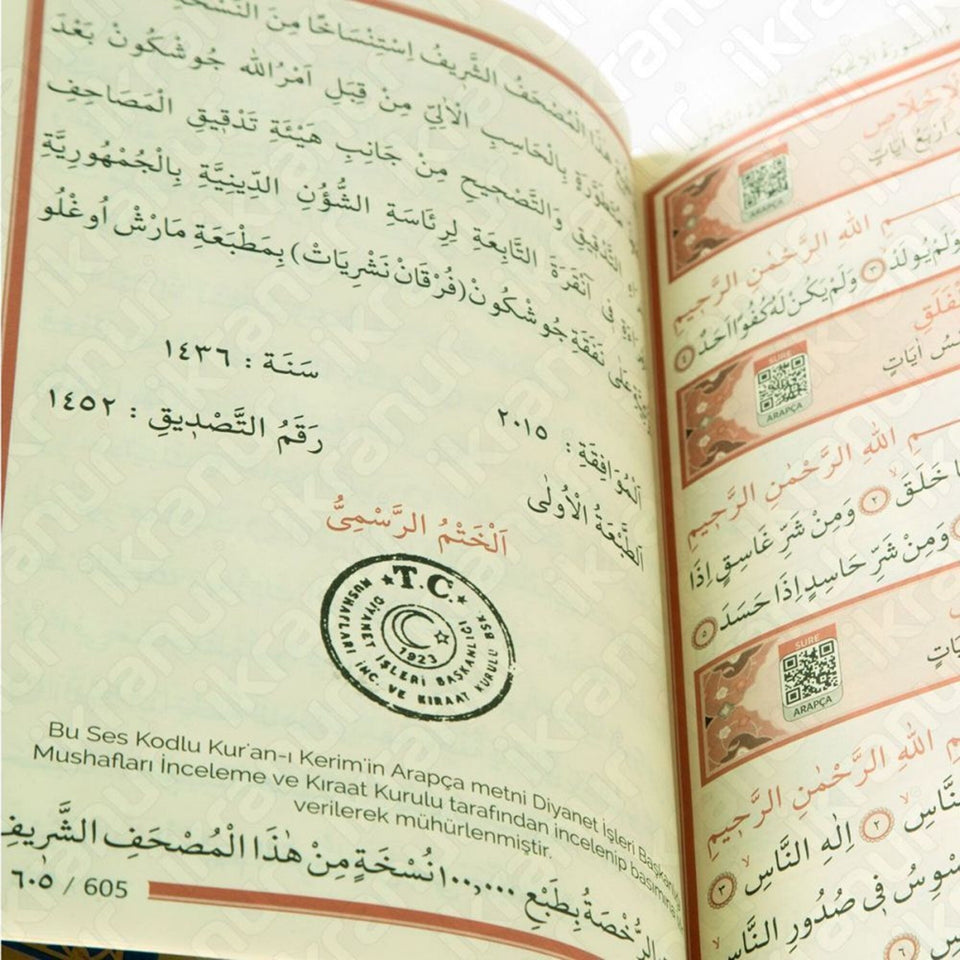 هٰذَا الْمُصْحَفُ الشَّرِيفُ اِسْتِنْسَاخًا مِنَ النُّسْخَةِ
مَنْظُورَةً بِالْحَاسِبِ الْاٰلِيّ مِنْ قِبَلِ اَمْرُاللّٰه جُوشْكُونْ بَعْدَ
التَّدْقِيقِ وَالتَّصْحِيحِ مِنْ جَانِبِ هَيْئَةِ تَدْقِيقِ الْمَصَاحِفِ
فِى اَنْقَرَةَ التَّابِعَةِ لِرِئَاسَةِ الشُّؤُنِ الدِّينِيَّةِ بِالْجُمْهُورِيَّةِ
عَلٰى نَفَقَةِ جُوشْكُونْ (فُرْقَانْ نَشْرِيَاتْ) بِمَطْبَعَةِ مَارْشْ اُوغْلُو
سَنَة : ١٤٣٦
اَلْمُوَافِقَةِ : ٢٠١٥
رَقَمُ التَّصْدِيقِ : ١٤٥٢
اَلطَّبْعَةُ الْاُولٰى
اَلْخَتْمُ الرَّسْمِىُّ
T.C.
DİYANET İŞLERİ BAŞKANLIĞI
MUSHAFLARI İNC. VE KIRAAT KURULU BŞK.
1923
Bu Ses Kodlu Kur'an-ı Kerim'in Arapça metni Diyanet İşleri
Mushafları İnceleme ve Kıraat Kurulu tarafından incelenip basımına
verilerek mühürlenmiştir.
الرُّخْصَةُ بِطَبْعِ ١٠٠,٠٠٠ نُسْخَةٍ مِنْ هٰذَا الْمُصْحَفِ الشَّرِيفِ
٦٠٥ / 605
اَرْبَعُ اٰيَاتٍ
ARAPÇA
اللّٰهِ الرَّحْمٰنِ الرَّحِيمِ
وَلَمْ يُولَدْ ٣ وَلَمْ يَكُنْ لَهُ كُفُوًا اَحَدٌ ٤
اٰيَاتٍ
SURE
ARAPÇA
اللّٰهِ الرَّحْمٰنِ الرَّحِيمِ
خَلَقَ ٢ وَمِنْ شَرِّ غَاسِقٍ اِذَا
وَمِنْ شَرِّ حَاسِدٍ اِذَا حَسَدَ ٥
SURE
ARAPÇA
اللّٰهِ الرَّحْمٰنِ الرَّحِيمِ
النَّاسِ ٢ اِلٰهِ النَّاسِ ٣
فِى صُدُورِ النَّاسِ
٦
ikranur